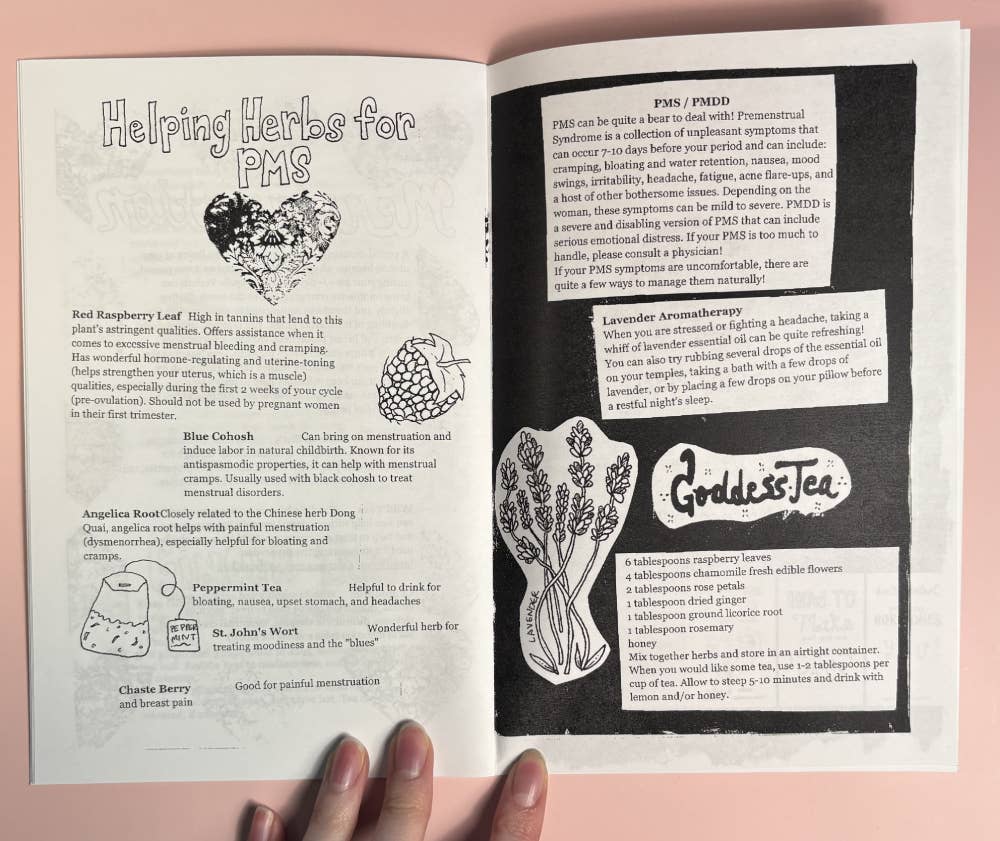 Helping Herbs for
PMS
Red Raspberry Leaf High in tannins that lend to this
plant's astringent qualities. Offers assistance when it
comes to excessive menstrual bleeding and cramping.
Has wonderful hormone-regulating and uterine-toning
(helps strengthen your uterus, which is a muscle)
qualities, especially during the first 2 weeks of your cycle
(pre-ovulation). Should not be used by pregnant women
in their first trimester.
Blue Cohosh Can bring on menstruation and
induce labor in natural childbirth. Known for its
antispasmodic properties, it can help with menstrual
cramps. Usually used with black cohosh to treat
menstrual disorders.
Angelica RootClosely related to the Chinese herb Dong
Quai, angelica root helps with painful menstruation
(dysmenorrhea), especially helpful for bloating and
cramps.
Peppermint Tea Helpful to drink for
bloating, nausea, upset stomach, and headaches
PEPPER
MINT
St. John's Wort Wonderful herb for
treating moodiness and the "blues"
Chaste Berry Good for painful menstruation
and breast pain
PMS / PMDD
PMS can be quite a bear to deal with! Premenstrual
Syndrome is a collection of unpleasant symptoms that
can occur 7-10 days before your period and can include:
cramping, bloating and water retention, nausea, mood
swings, irritability, headache, fatigue, acne flare-ups, and
a host of other bothersome issues. Depending on the
woman, these symptoms can be mild to severe. PMDD is
a severe and disabling version of PMS that can include
serious emotional distress. If your PMS is too much to
handle, please consult a physician!
If your PMS symptoms are uncomfortable, there are
quite a few ways to manage them naturally!
Lavender Aromatherapy
When you are stressed or fighting a headache, taking a
whiff of lavender essential oil can be quite refreshing!
You can also try rubbing several drops of the essential oil
on your temples, taking a bath with a few drops of
lavender, or by placing a few drops on your pillow before
a restful night's sleep.
LAVENDER
Goddess Tea
6 tablespoons raspberry leaves
4 tablespoons chamomile fresh edible flowers
2 tablespoons rose petals
1 tablespoon dried ginger
1 tablespoon ground licorice root
1 tablespoon rosemary
honey
Mix together herbs and store in an airtight container.
When you would like some tea, use 1-2 tablespoons per
cup of tea. Allow to steep 5-10 minutes and drink with
lemon and/or honey.